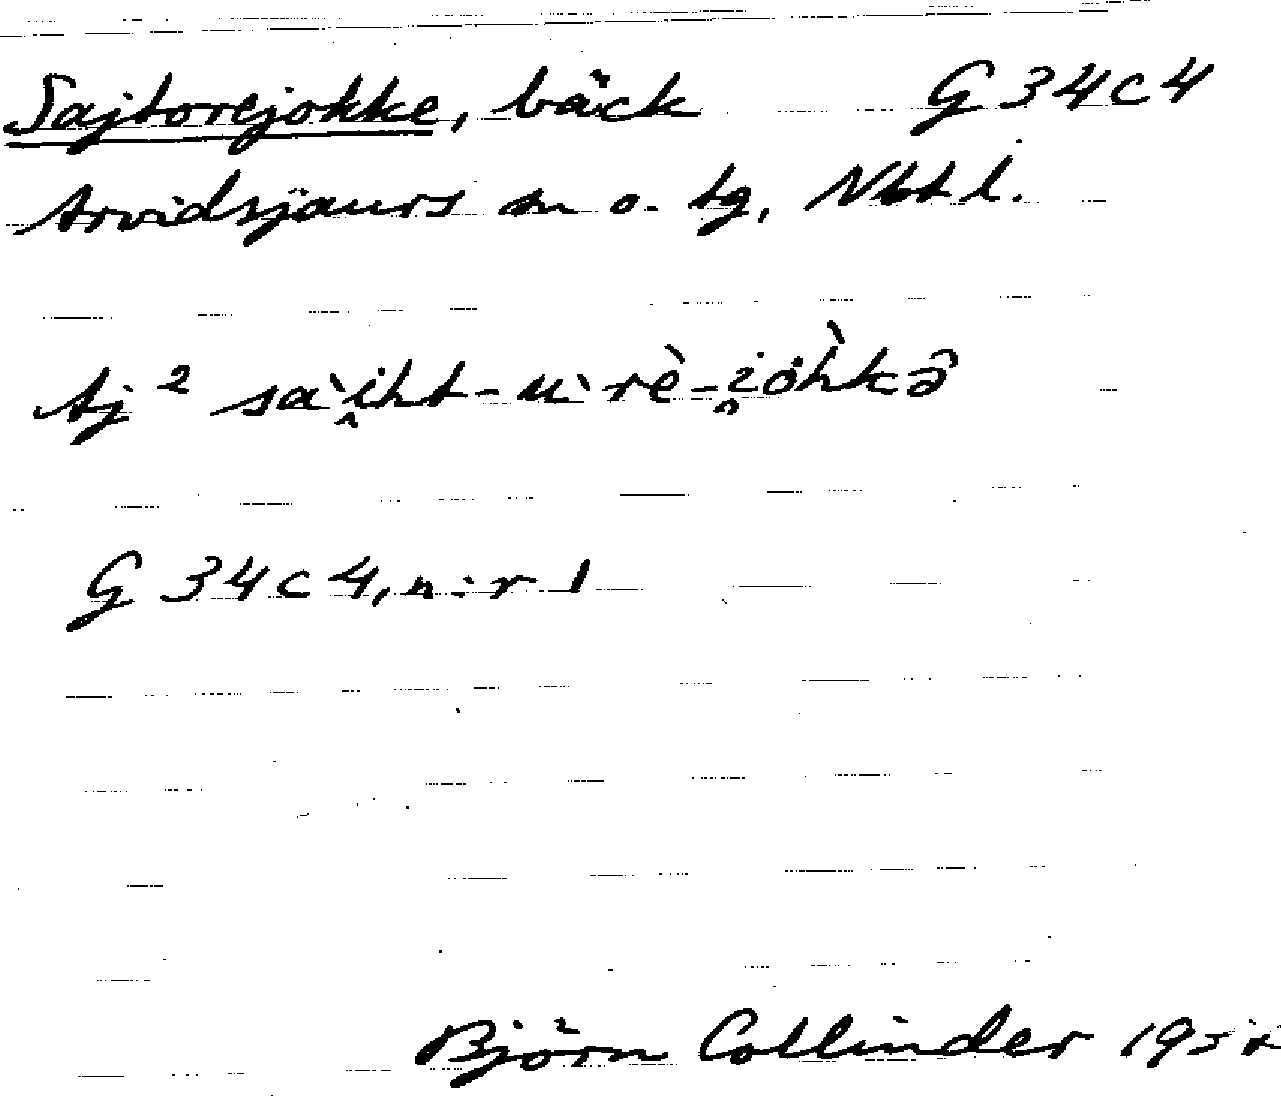 Sajtorejokke, bäck G 34c4
Arvidsjaurs sn o. tg, Nbtl.
Aj² sa`i̭ht-u`rè-i̭òh̀kə̑
G 34c4, n:r 1
Björn Collinder